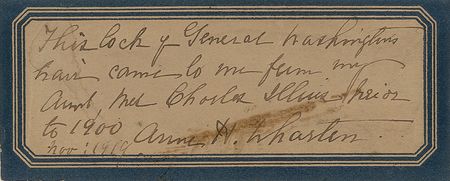 This lock of General Washington's
hair came to me from my
Aunt, Mrs Charles Illius prior
to 1900 Anne H. Wharton.
Nov: 1919